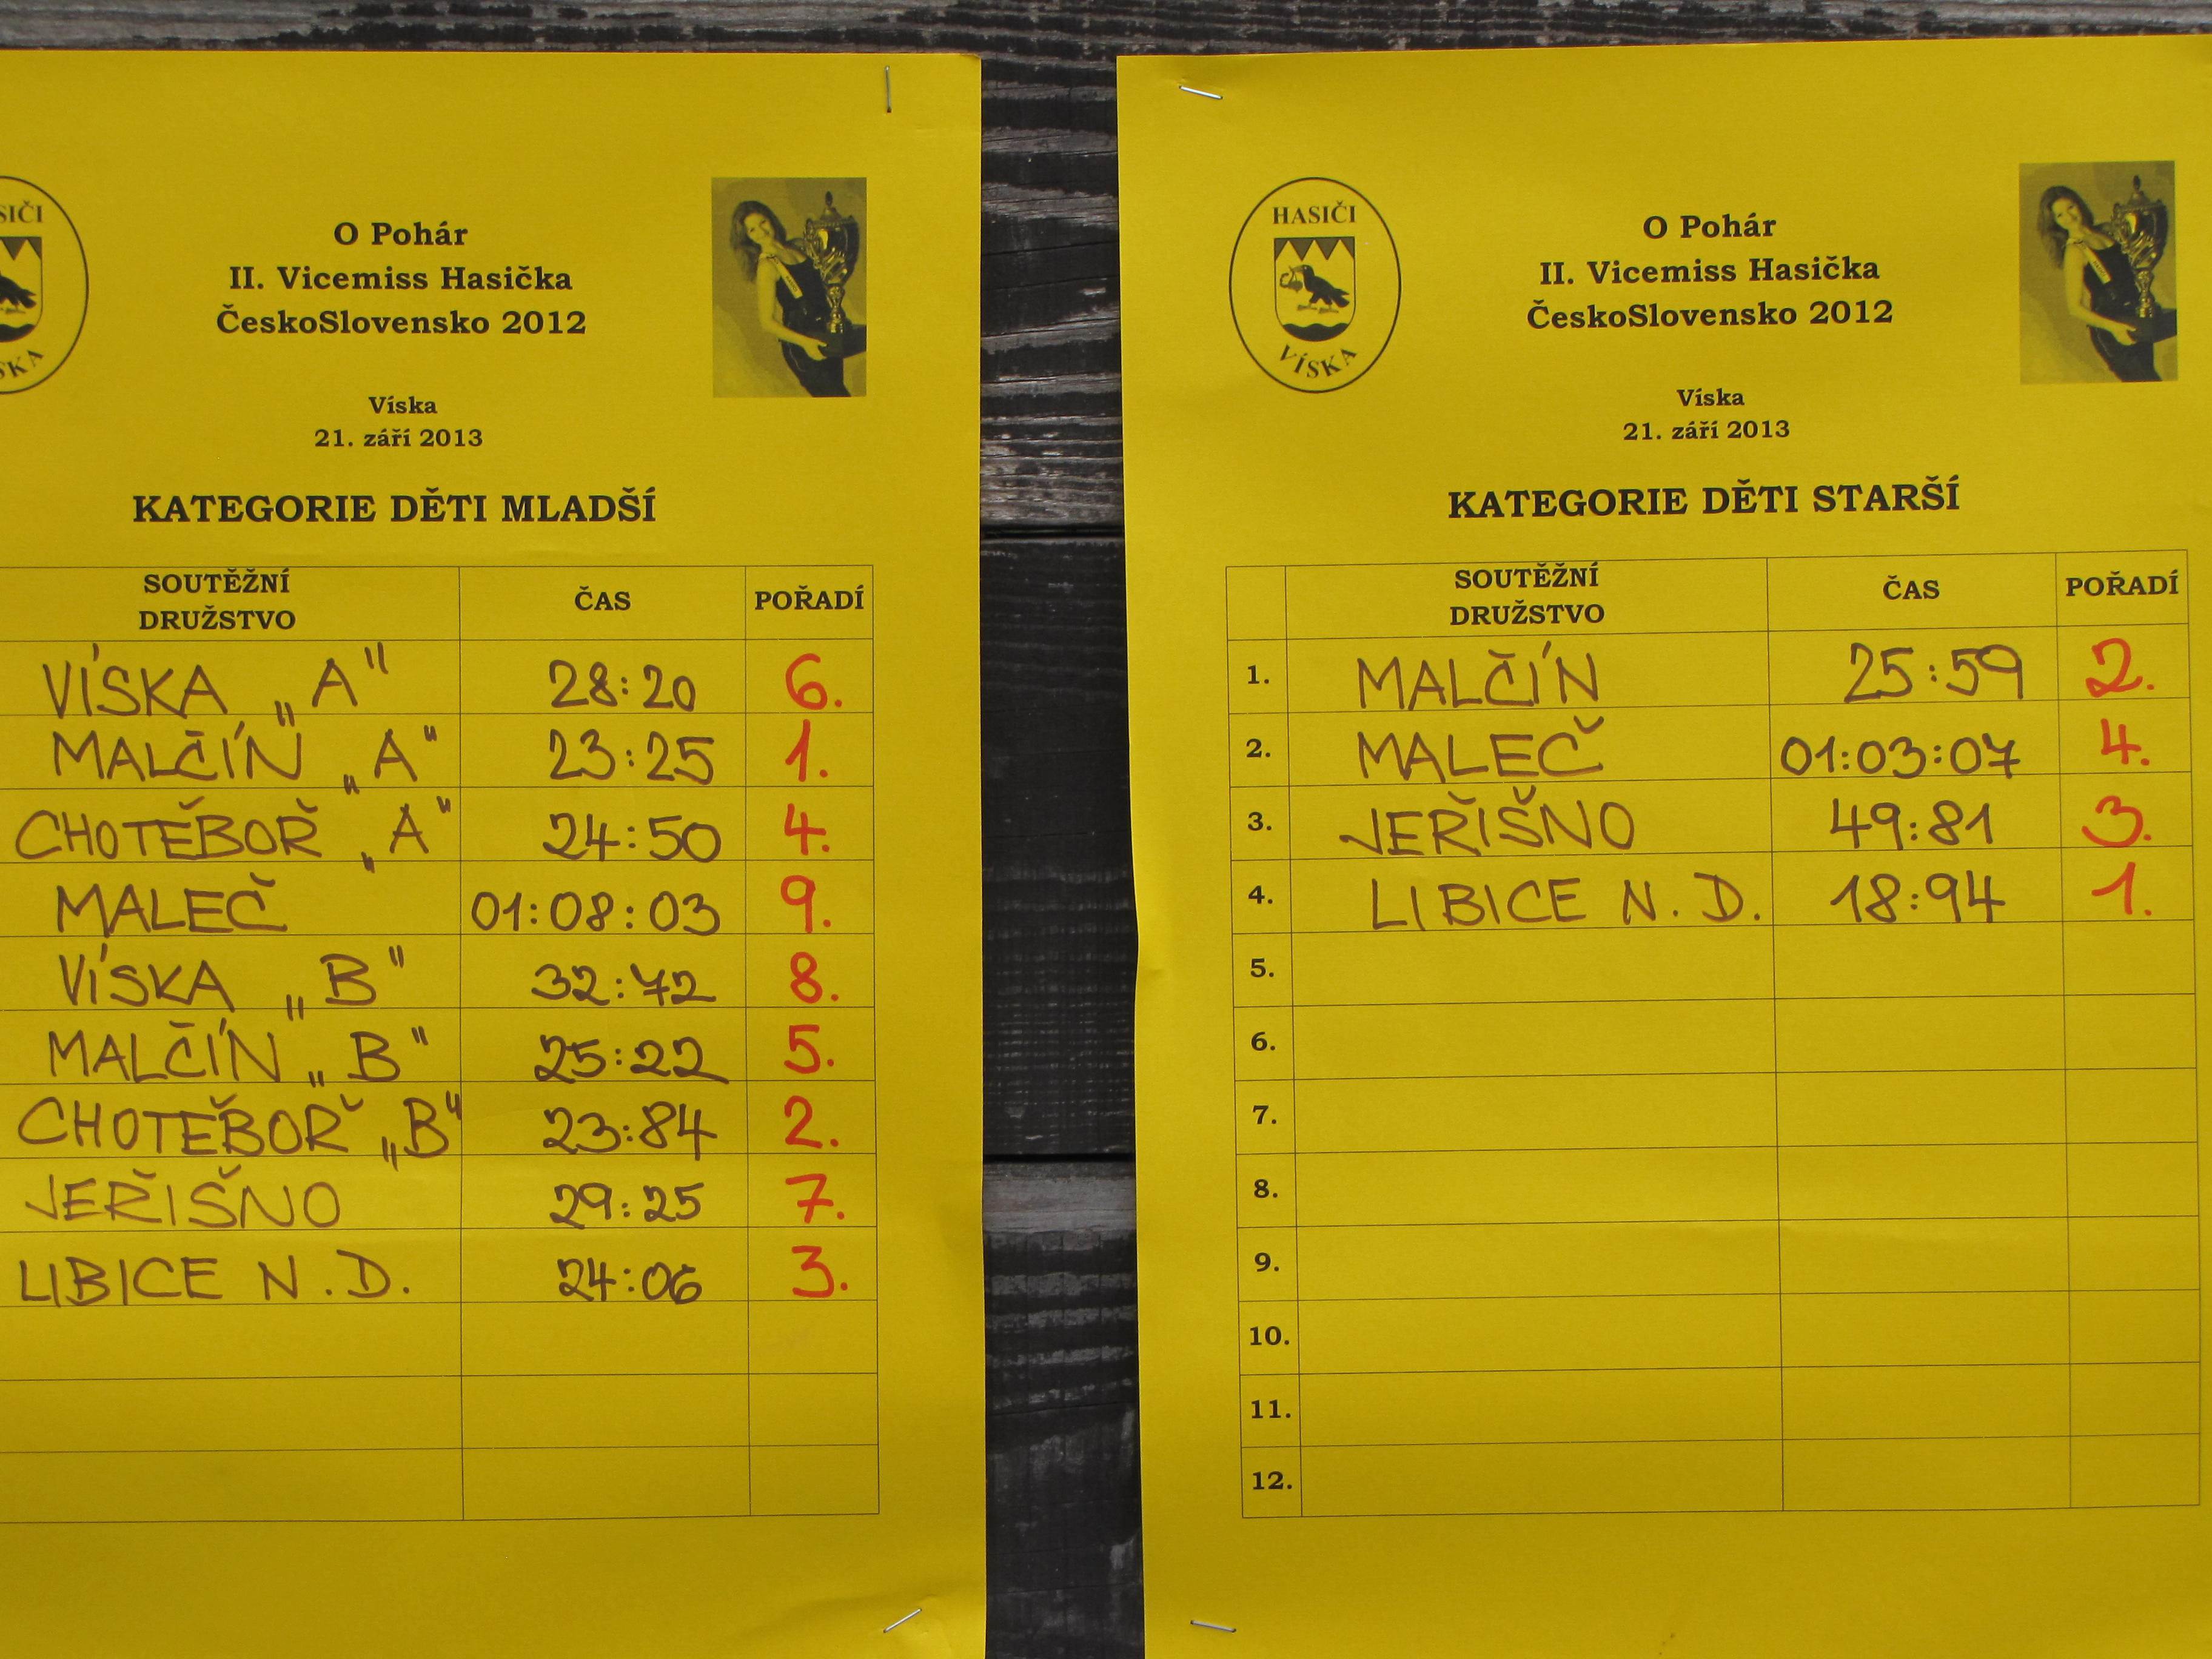 SIČI
SKA
O Pohár
II. Vicemiss Hasička
ČeskoSlovensko 2012
Víska
21. září 2013
KATEGORIE DĚTI MLADŠÍ
SOUTĚŽNÍ DRUŽSTVO ČAS POŘADÍ
VÍSKA „A" 28:20 6.
MALČÍN „A" 23:25 1.
CHOTĚBOŘ „A" 24:50 4.
MALEČ 01:08:03 9.
VÍSKA „B" 32:72 8.
MALČÍN „B" 25:22 5.
CHOTĚBOŘ „B" 23:84 2.
JEŘIŠNO 29:25 7.
LIBICE N.D. 24:06 3.
HASIČI
VÍSKA
O Pohár
II. Vicemiss Hasička
ČeskoSlovensko 2012
Víska
21. září 2013
KATEGORIE DĚTI STARŠÍ
SOUTĚŽNÍ DRUŽSTVO ČAS POŘADÍ
1. MALČÍN 25:59 2.
2. MALEČ 01:03:07 4.
3. JEŘIŠNO 49:81 3.
4. LIBICE N.D. 18:94 1.
5.
6.
7.
8.
9.
10.
11.
12.